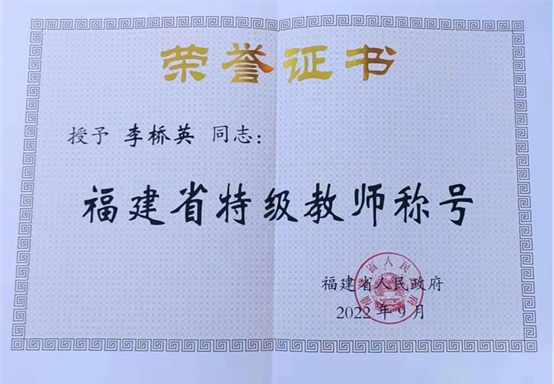 荣誉证书
授予 李桥英 同志：
福建省特级教师称号
福建省人民政府
2022年9月